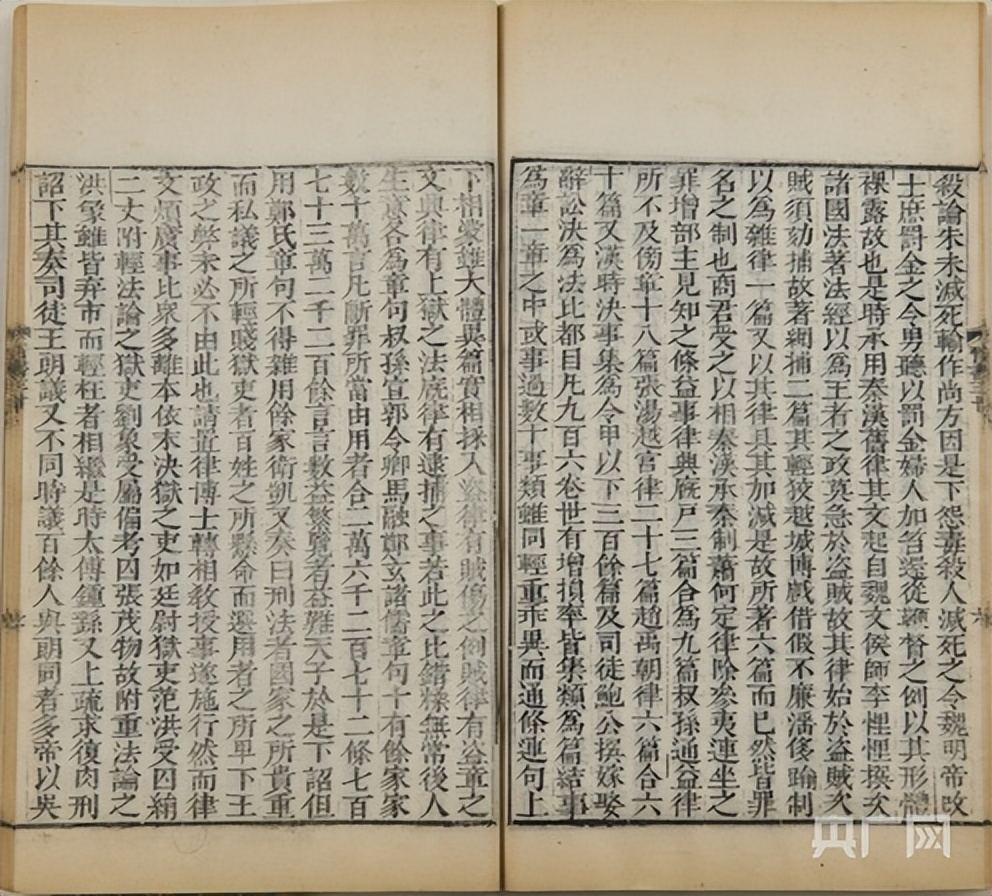 殺論朱未減死輸作尚方因是下怨毒殺人減死之令魏明帝改
士庶罰金之令男聽以罰金婦人加笞還從鞭督之例以其形體
裸露故也是時承用秦漢舊律其文起自魏文侯師李悝悝撰次
諸國法著法經以為王者之政莫急於盜賊故其律始於盜賊次
賊須劾捕故著網捕二篇其輕狡越城博戲借假不廉淫侈踰制
以為雜律一篇又以其律具其加減是故所著六篇而已然皆罪
名之制也商君受之以相秦漢承秦制蕭何定律除參夷連坐之
罪增部主見知之條益事律興廐戸三篇合為九篇叔孫通益律
所不及傍章十八篇張湯越宮律二十七篇趙禹朝律六篇合六
十篇又漢時決事集為令甲以下三百餘篇及司徒鮑公撰嫁娶
辭訟決為法比都目凡九百六卷世有增損率皆集類為篇結事
為章一章之中或事過數十事類雖同輕重乖異而通條連句上
下相蒙雖大體異篇實相採入盜律有賊傷之例賊律有盜章之
文興律有上獄之法廐律有逮捕之事若此之比錯糅無常後人
生意各為章句叔孫宣郭令卿馬融鄭玄諸儒章句十有餘家家
數十萬言凡斷罪所當由用者合二萬六千二百七十二條七百
七十三萬二千二百餘言言數益繁覽者益難天子於是下詔但
用鄭氏章句不得雜用餘家衛凱又奏曰刑法者國家之所貴重
而私議之所輕賤獄吏者百姓之所縣命而選用者之所卑下王
政之弊未必不由此也請置律博士轉相教授事遂施行然而律
文煩廣事比衆多離本依末決獄之吏如廷尉獄吏范洪受囚絹
二丈附輕法論之獄吏劉象受屬偏考囚張茂物故附重法論之
洪象雖皆弃市而輕枉者相繼是時太傅鍾繇又上疏求復肉刑
詔下其奏司徒王朗議又不同時議百餘人與朗同者多帝以吳
央广网